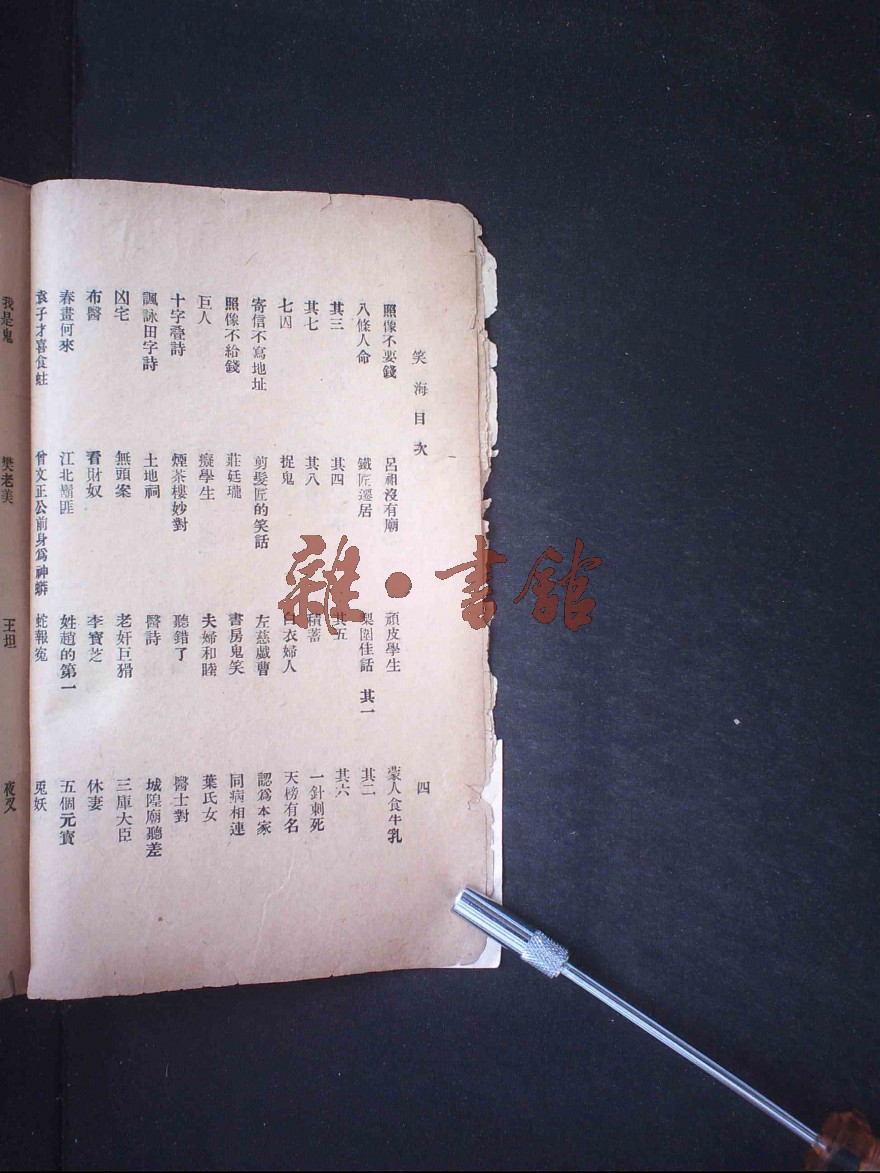 笑海目次 四
照像不要錢 呂祖沒有廟 頑皮學生 蒙人食牛乳
八條人命 鐵匠遷居 梨園佳話 其一 其二
其三 其四 其五 其六
其七 其八 積蓄 一針刺死
七囚 捉鬼 白衣婦人 天榜有名
寄信不寫地址 剪髮匠的笑話 左慈戲曹 認爲本家
照像不給錢 莊廷瓏 書房鬼笑 同病相連
巨人 癡學生 夫婦和睦 葉氏女
十字疊詩 煙茶樓妙對 聽錯了 醫士對
諷詠田字詩 土地祠 醫詩 城隍廟聽差
凶宅 無頭案 老奸巨猾 三庫大臣
布醫 看財奴 李寶芝 休妻
春畫何來 江北鬍匪 姓趙的第一 五個元寶
袁子才喜食蛙 曾文正公前身爲神蟒 蛇報冤 兎妖
我是鬼 樊老美 王坦 夜叉
雜·書館